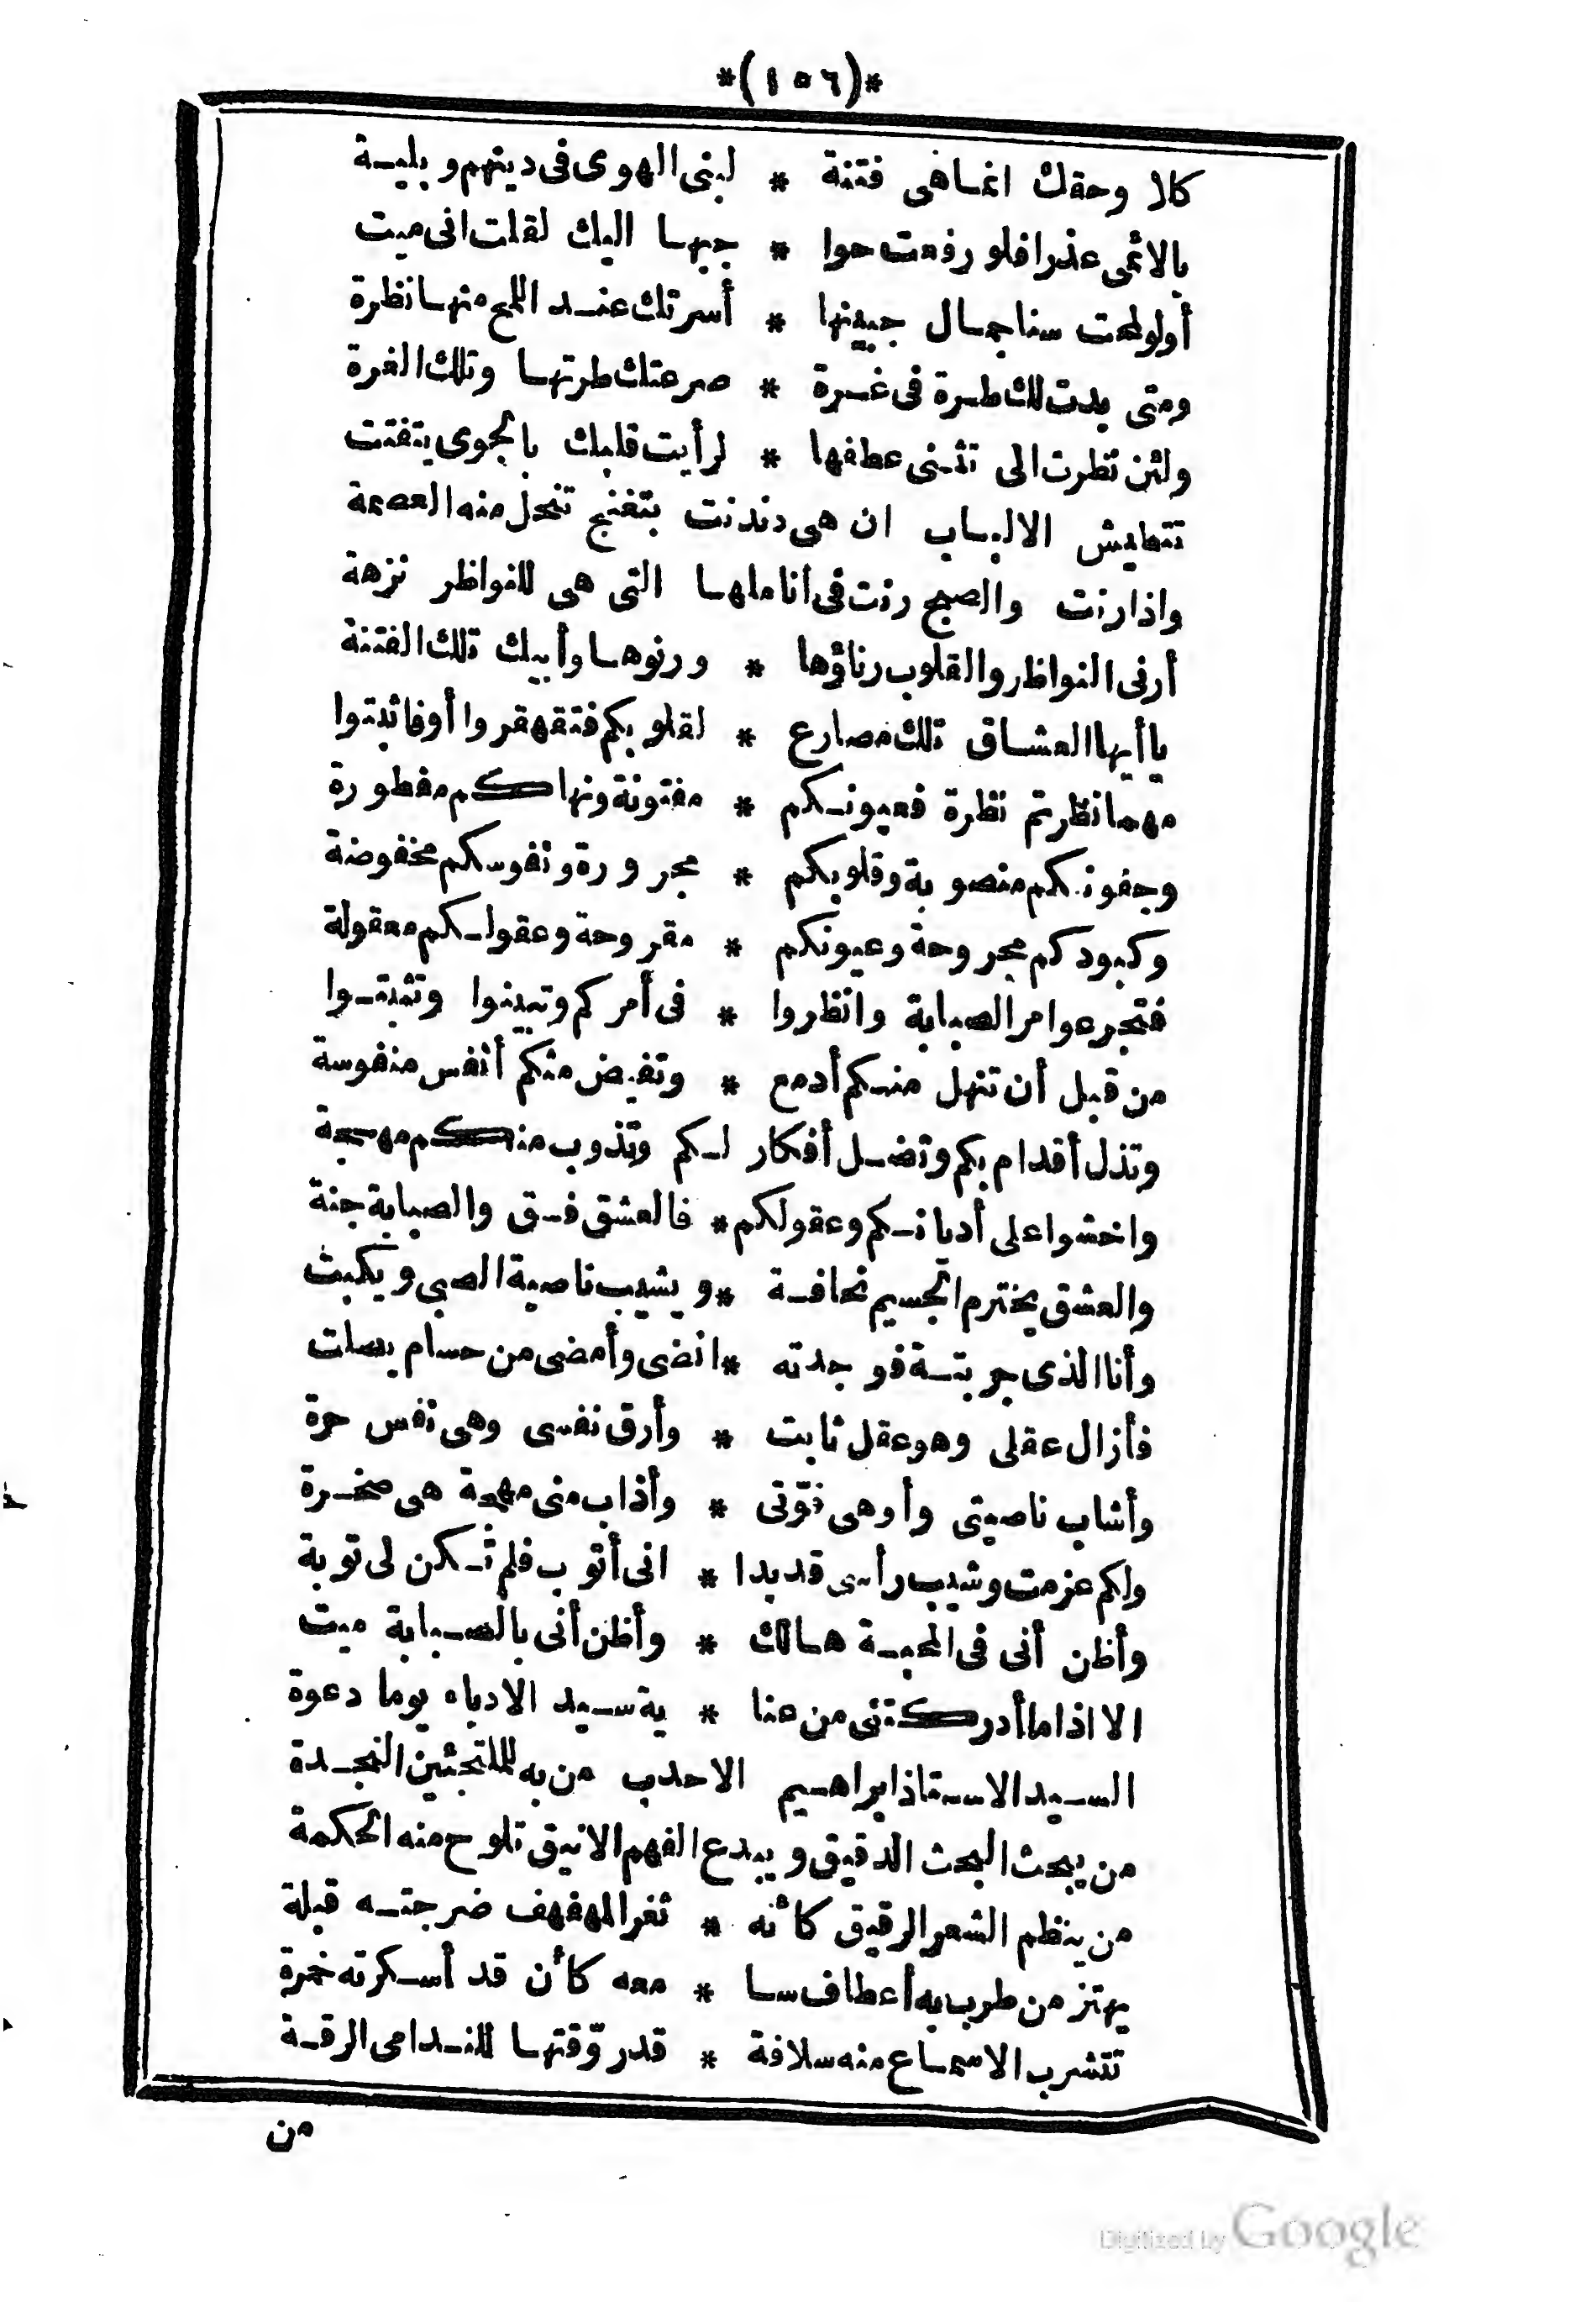 *(١٥٦)*
كلا وحقك انما هى فتنة * لبنى الهوى فى دينهم وبلية
يالائمى عذرا فلو رفعت حوا * جبها اليك لقلت انى ميت
أو لو لمحت سنا جمال جبينها * أسرتك عند اللمح منها نظرة
ومتى بدت لك طرة فى غرة * صرعتك طرتها وتلك الغرة
ولئن نظرت الى تثنى عطفها * لرأيت قلبك بالجوى يتفتت
تتطيش الالباب ان هى دندنت بتغنج تنحل منه العصمة
واذا رنت والصبح رنت فى أناملها التى هى للنواظر نزهة
أرنى النواظر والقلوب رناؤها * ورنوها وأبيك تلك الفتنة
يا أيها العشاق تلك مصارع * لقلوبكم فتقهقروا أو فاثبتوا
مهما نظرتم نظرة فعيونكم * مفتونة ونهاكم مفطورة
وجفونكم منصوبة وقلوبكم * مجرورة ونفوسكم مخفوضة
وكبودكم مجروحة وعيونكم * مقروحة وعقولكم معقولة
فتجرعوا مر الصبابة وانظروا * فى أمركم وتبينوا وتثبتوا
من قبل أن تنهل منكم أدمع * وتفيض منكم أنفس منفوسة
وتذل أقدام بكم وتضل أفكار لكم وتذوب منكم مهجة
واخشوا على أديانكم وعقولكم * فالعشق فسق والصبابة جنة
والعشق يخترم الجسيم نحافة * ويشيب ناصية الصبى ويكبت
وأنا الذى جربته فوجدته * انضى وأمضى من حسام يصلت
فأزال عقلى وهو عقل ثابت * وأرق نفسى وهى نفس حرة
وأشاب ناصيتى وأوهى قوّتى * وأذاب منى مهجة هى صخرة
ولكم عزمت وشيب رأسى قد بدا * انى أتوب فلم تكن لى توبة
وأظن أنى فى المحبة هالك * وأظن أنى بالصبابة ميت
الا اذا ما أدركتنى من عنا * ية سيد الادباء يوما دعوة
السيد الاستاذ ابراهيم الاحدب من به للملتجئين النجدة
من يبحث البحث الدقيق ويبدع الفهم الانيق تلوح منه الحكمة
من ينظم الشعر الرقيق كأنه * ثغر المهفهف ضرجته قبلة
يهتز من طرب به أعطاف سا * معه كأن قد أسكرته خمرة
تتشرب الاسماع منه سلافة * قد روّقتها للندامى الرقة
من
Digitized by Google